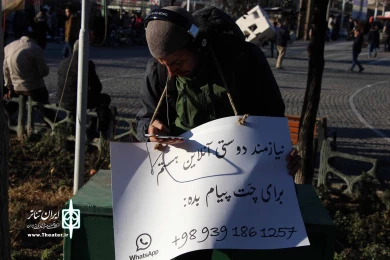 نیازمند دوستی آنلاین هستم
برای چت پیام بده:
+98 939 186 1257
WhatsApp
ایران تئاتر
www.theater.ir